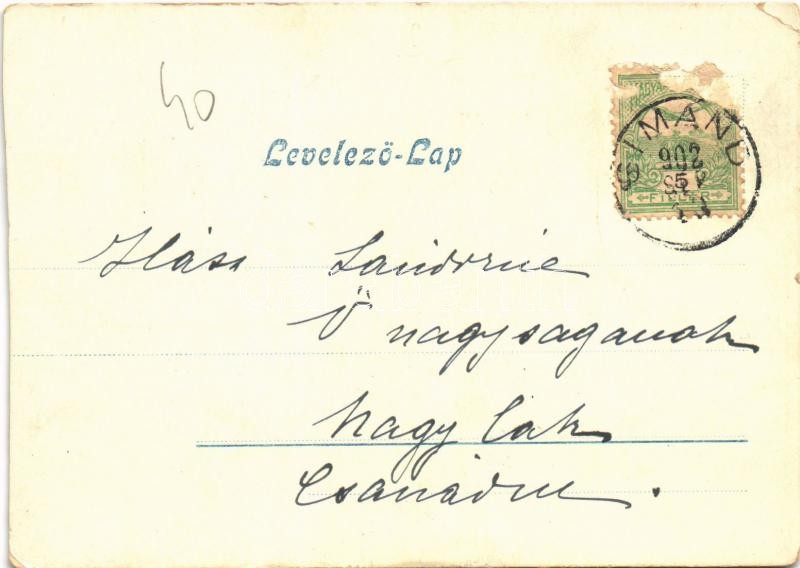 40
Levelező-Lap
MAGYAR
SIMÁND
902
5
FILLÉR
Sándorné
Ő nagyságának
Nagy lak
Csanádm.